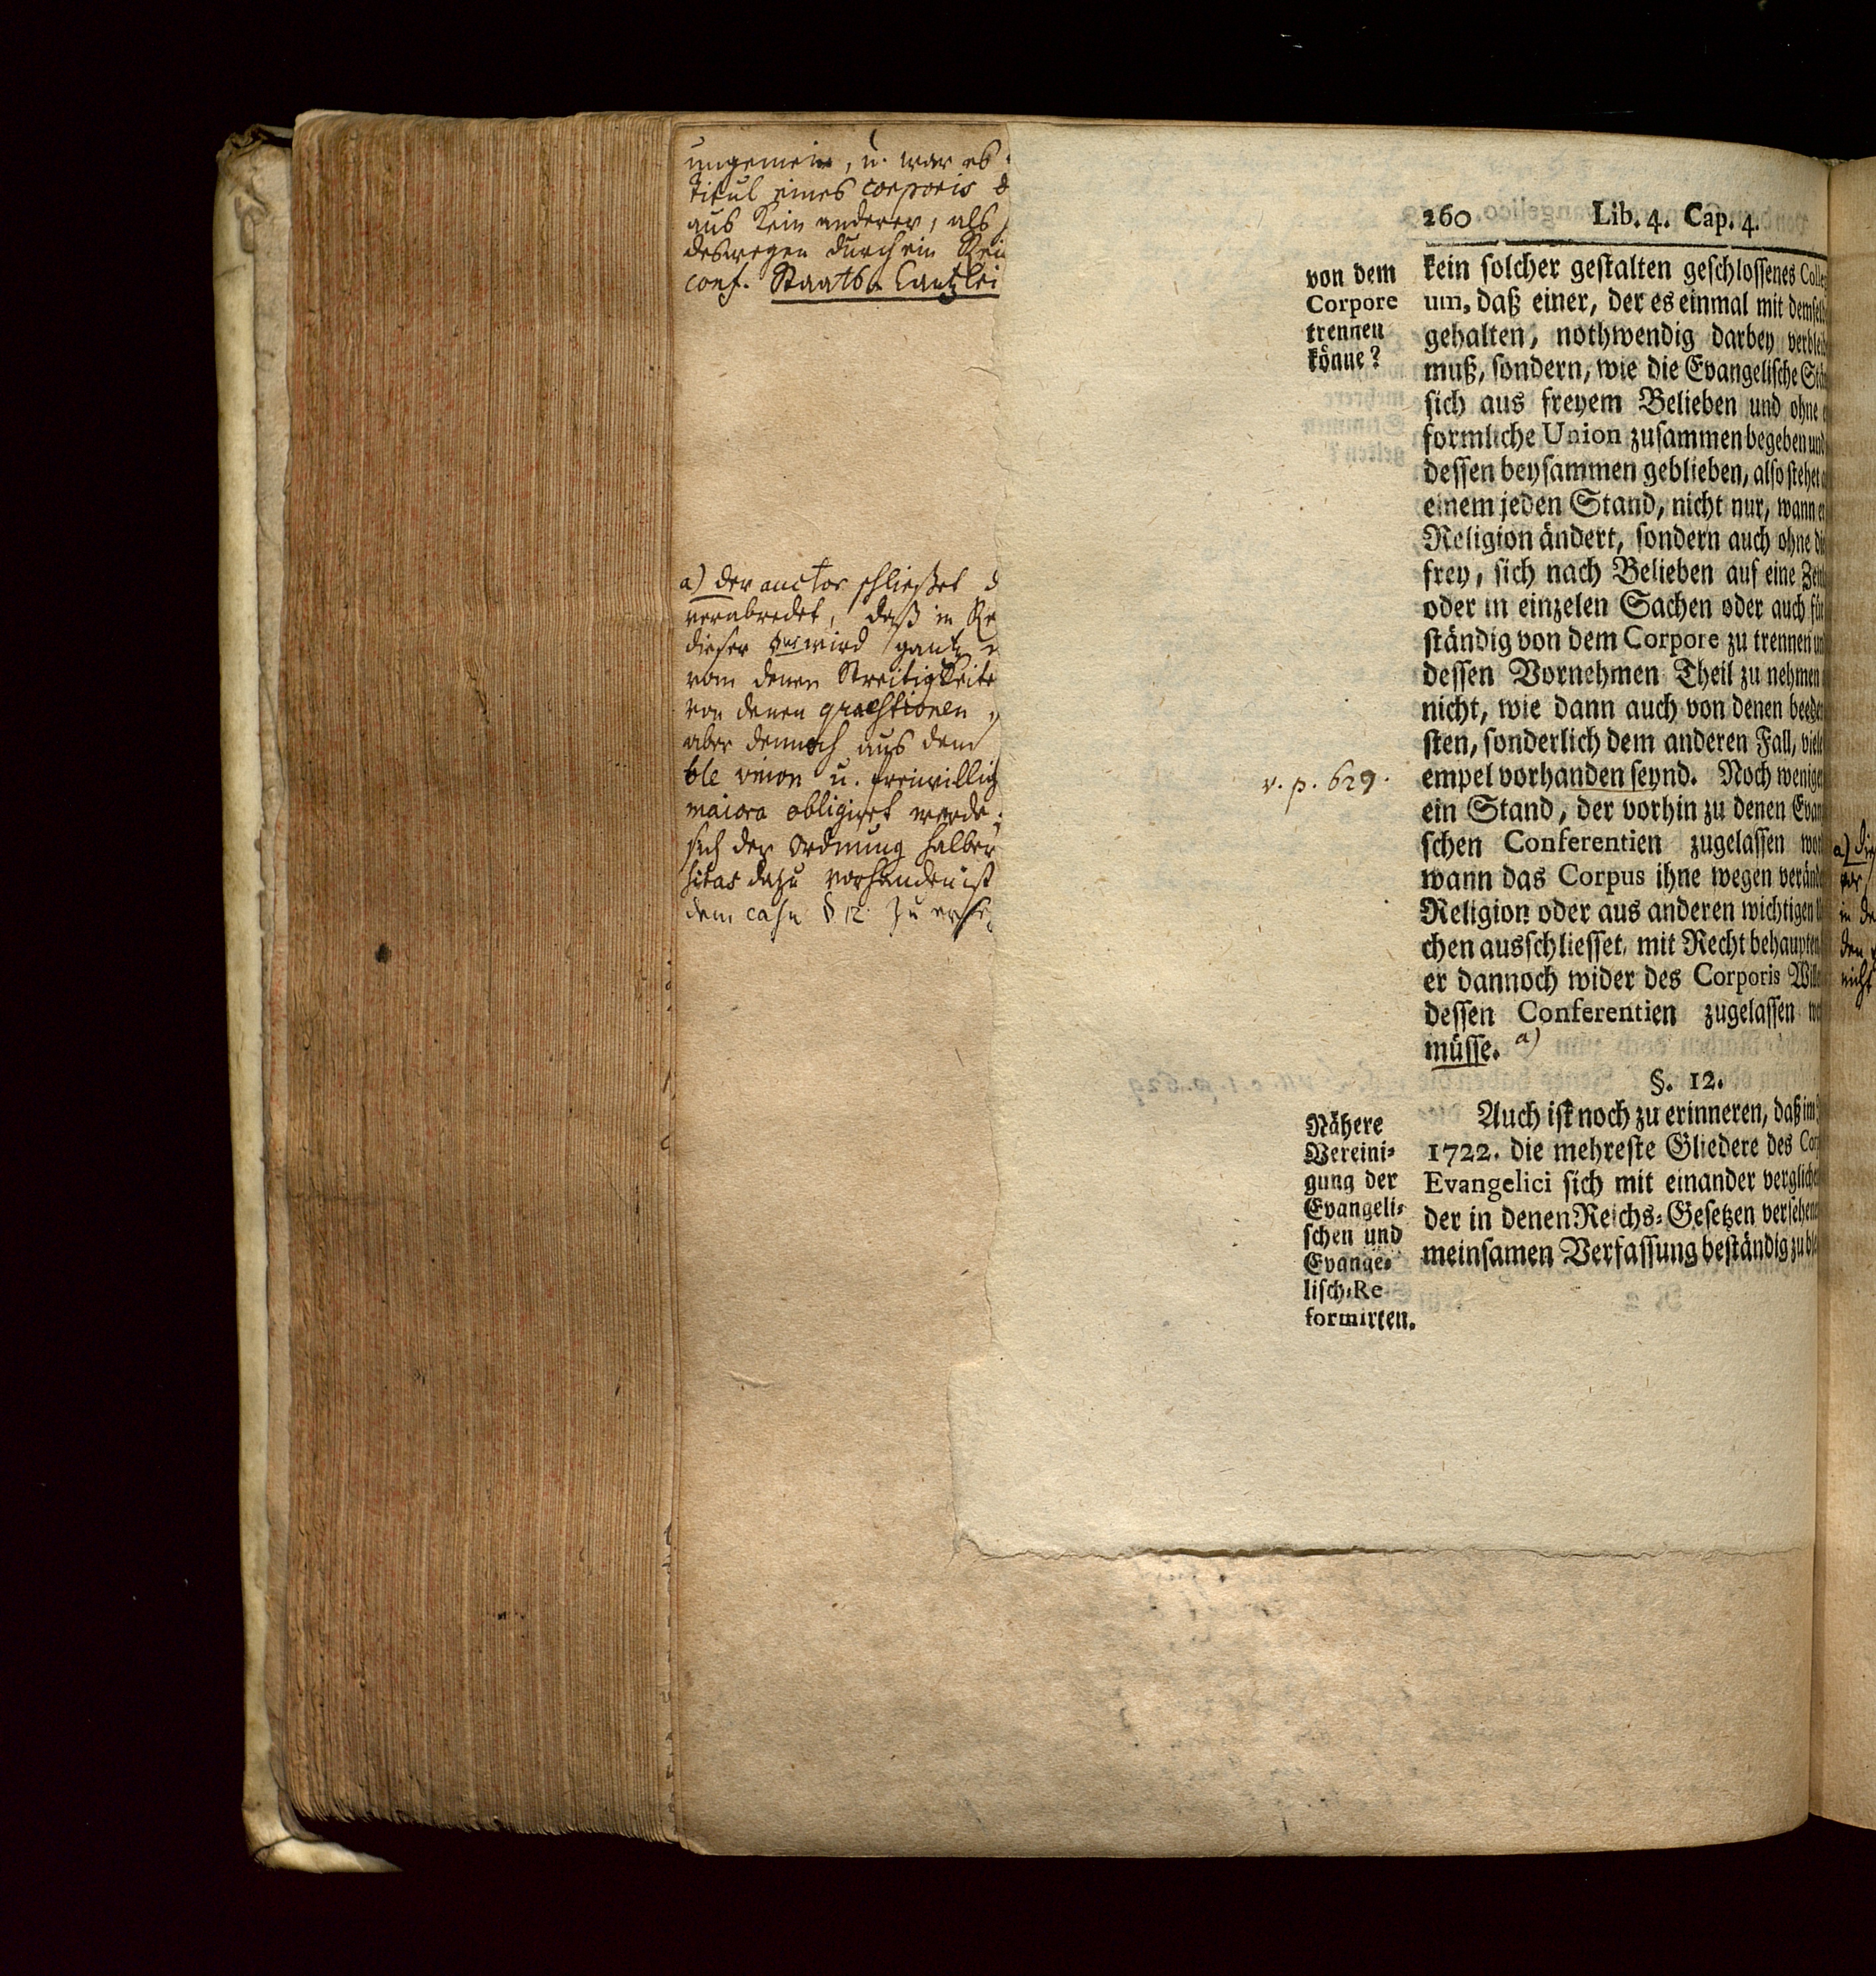 ungemein, u. war es
Titul eines corporis
aus kein anderer, als
deswegen durch ein
conf. Staats-Cantzlei
a) der auctor schließet
verabredet, daß in
dieser wird gantz
von denen Streitigkeite
von denen quaestionen
aber dennoch aus dem
ble union u. freiwillig
maiora obligiret werde
sich der Ordnung halber
sitas dazu vorhanden ist
dem casu § 12. zu
260 Lib. 4. Cap. 4.
von dem
Corpore
trennen
könne?
kein solcher gestalten geschlossenes Colle
um, daß einer, der es einmal mit demsel
gehalten, nothwendig darbey verblei
muß, sondern, wie die Evangelische Stä
sich aus freyem Belieben und ohne e
formliche Union zusammen begeben und
dessen beysammen geblieben, also stehet
einem jeden Stand, nicht nur, wann er
Religion ändert, sondern auch ohne di
frey, sich nach Belieben auf eine Zeit
oder in einzelen Sachen oder auch für
ständig von dem Corpore zu trennen un
dessen Vornehmen Theil zu nehmen
nicht, wie dann auch von denen beeden
sten, sonderlich dem anderen Fall, viele
v. p. 629.
empel vorhanden seynd. Noch weniger
ein Stand, der vorhin zu denen Evan
schen Conferentien zugelassen wor
wann das Corpus ihne wegen verände
Religion oder aus anderen wichtigen U
chen ausschliesset, mit Recht behaupten
er dannoch wider des Corporis Wille
dessen Conferentien zugelassen we
müsse. a)
§. 12.
Nähere
Vereini-
gung der
Evangeli-
schen und
Evange-
lisch-Re
formirten.
Auch ist noch zu erinneren, daß im J
1722. die mehreste Gliedere des Cor
Evangelici sich mit einander vergliche
der in denen Reichs-Gesetzen versehene
meinsamen Verfassung beständig zu ble
a)
in de
den
nicht